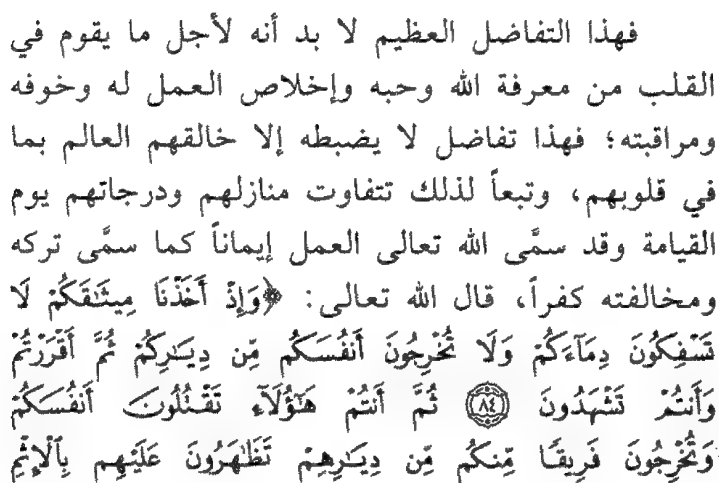 فهذا التفاضل العظيم لا بد أنه لأجل ما يقوم في
القلب من معرفة الله وحبه وإخلاص العمل له وخوفه
ومراقبته؛ فهذا تفاضل لا يضبطه إلا خالقهم العالم بما
في قلوبهم، وتبعاً لذلك تتفاوت منازلهم ودرجاتهم يوم
القيامة وقد سمَّى الله تعالى العمل إيماناً كما سمَّى تركه
ومخالفته كفراً، قال الله تعالى: ﴿وَإِذْ أَخَذْنَا مِيثَٰقَكُمْ لَا
تَسْفِكُونَ دِمَآءَكُمْ وَلَا تُخْرِجُونَ أَنفُسَكُم مِّن دِيَٰرِكُمْ ثُمَّ أَقْرَرْتُمْ
وَأَنتُمْ تَشْهَدُونَ ۝٨٤ ثُمَّ أَنتُمْ هَٰٓؤُلَآءِ تَقْتُلُونَ أَنفُسَكُمْ
وَتُخْرِجُونَ فَرِيقًا مِّنكُم مِّن دِيَٰرِهِمْ تَظَٰهَرُونَ عَلَيْهِم بِٱلْإِثْمِ